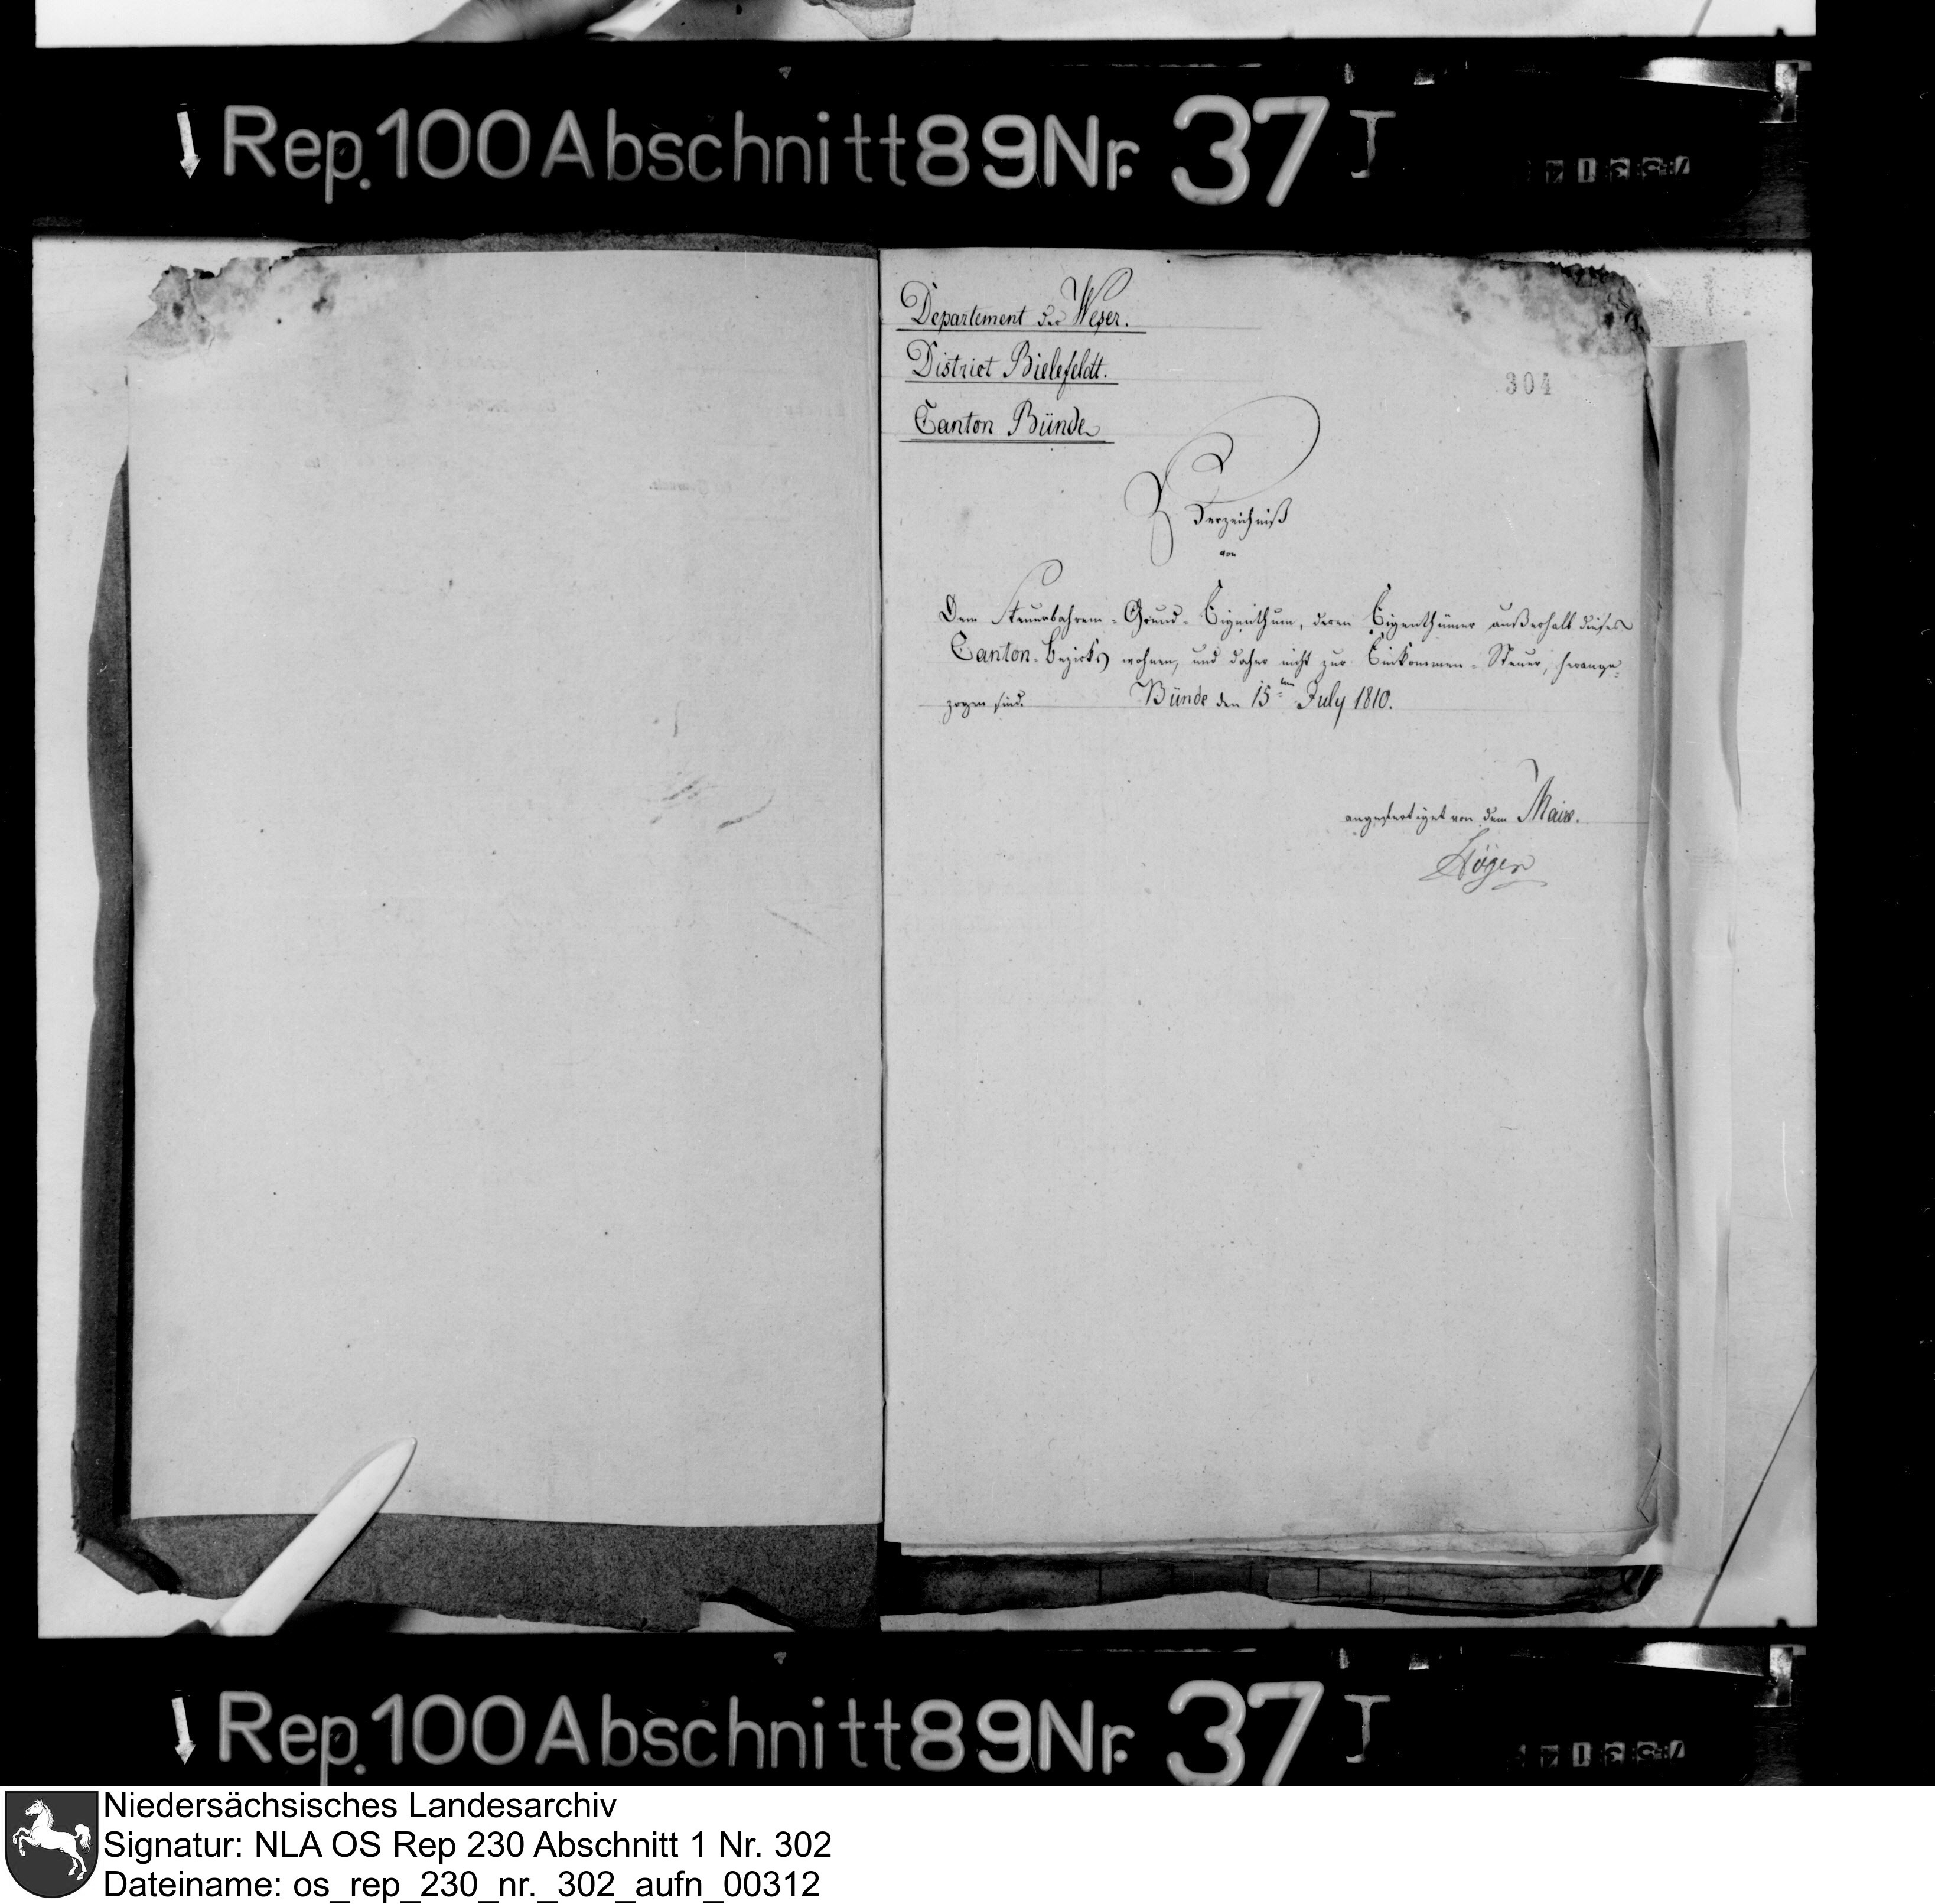 Rep. 100 Abschnitt 89 Nr. 37 I
Departement der Weser.
District Bielefeldt.
304
Canton Bünde
Verzeichniß
von
Dem Steuerbahrem-Grund-Eigenthum, deren Eigenthümer außerhalb dieses
Canton-Bezirks wohnen, und daher nicht zur Einkommen-Steuer, herange-
zogen sind. Bünde den 15ten July 1810.
angefertiget von dem Maire.
Rep. 100 Abschnitt 89 Nr. 37 I
Niedersächsisches Landesarchiv
Signatur: NLA OS Rep 230 Abschnitt 1 Nr. 302
Dateiname: os_rep_230_nr._302_aufn_00312